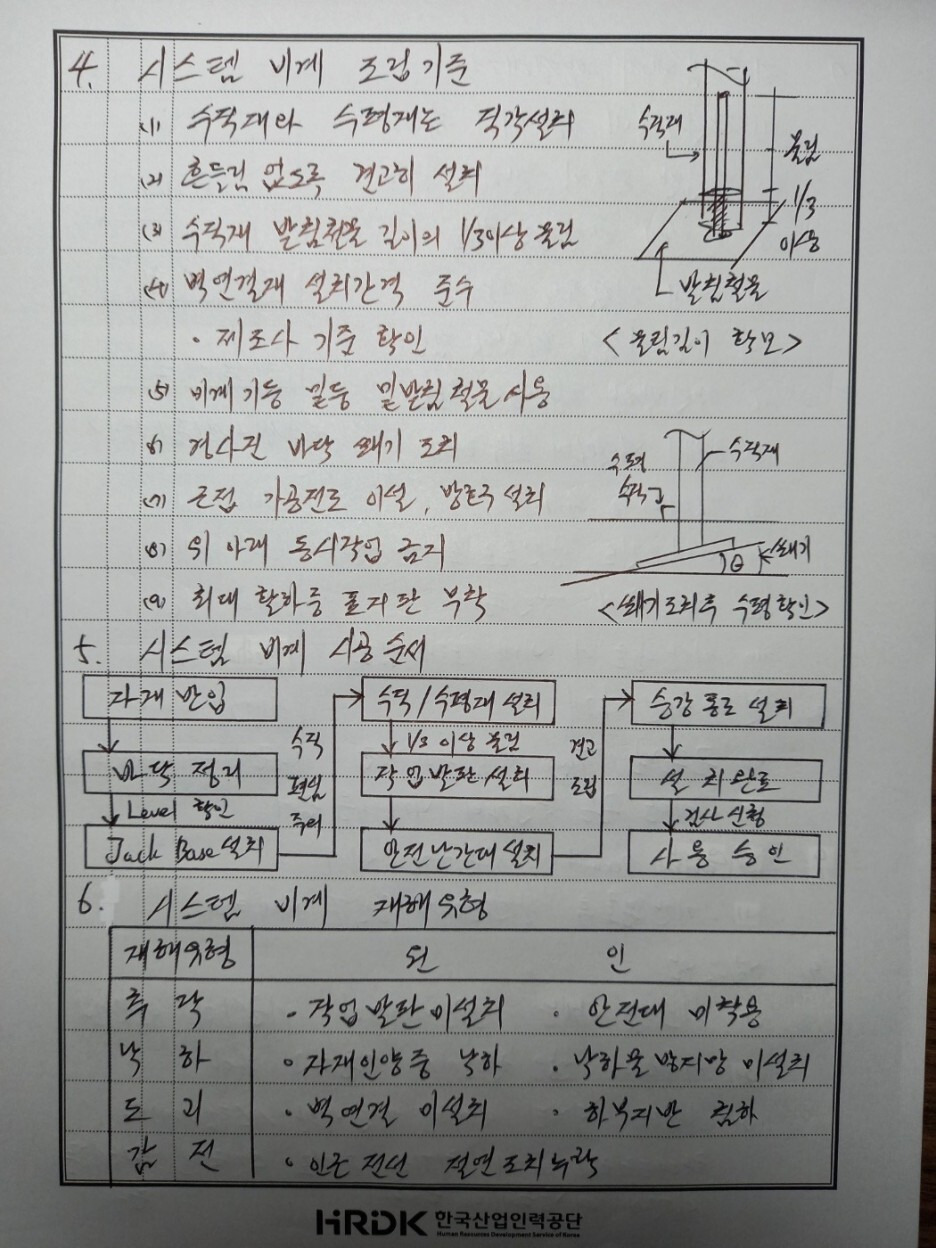 4. 시스템 비계 조립기준
(1) 수직재와 수평재는 직각설치
(2) 흔들림 없도록 견고히 설치
(3) 수직재 받침철물 길이의 1/3이상 물림
(4) 벽연결재 설치간격 준수
· 제조사 기준 확인
(5) 비계기둥 밑둥 밑받침철물사용
(6) 경사진 바닥 쐐기 조치
(7) 근접 가공전로 이설, 방호구 설치
(8) 위 아래 동시작업 금지
(9) 최대 활하중 표지판 부착
수직재
물림
1/3
이상
받침철물
<물림길이 확보>
수직재
수평
수직
쐐기
θ
<쐐기조치후 수평확인>
5. 시스템 비계 시공순서
자재 반입
바닥 정리
Level 확인
Jack Base설치
수직
편심
주의
수직/수평재 설치
1/3 이상 물림
작업발판설치
안전난간대 설치
견고
조립
승강통로 설치
설치완료
검사신청
사용승인
6. 시스템 비계 재해유형
재해유형 원 인
추 락 · 작업발판미설치 · 안전대 미착용
낙 하 · 자재인양중 낙하 · 낙하물방지망 미설치
도 괴 · 벽연결 미설치 · 하부지반 침하
감 전 · 인근전선 절연조치누락
HRDK 한국산업인력공단
Human Resources Development Service of Korea